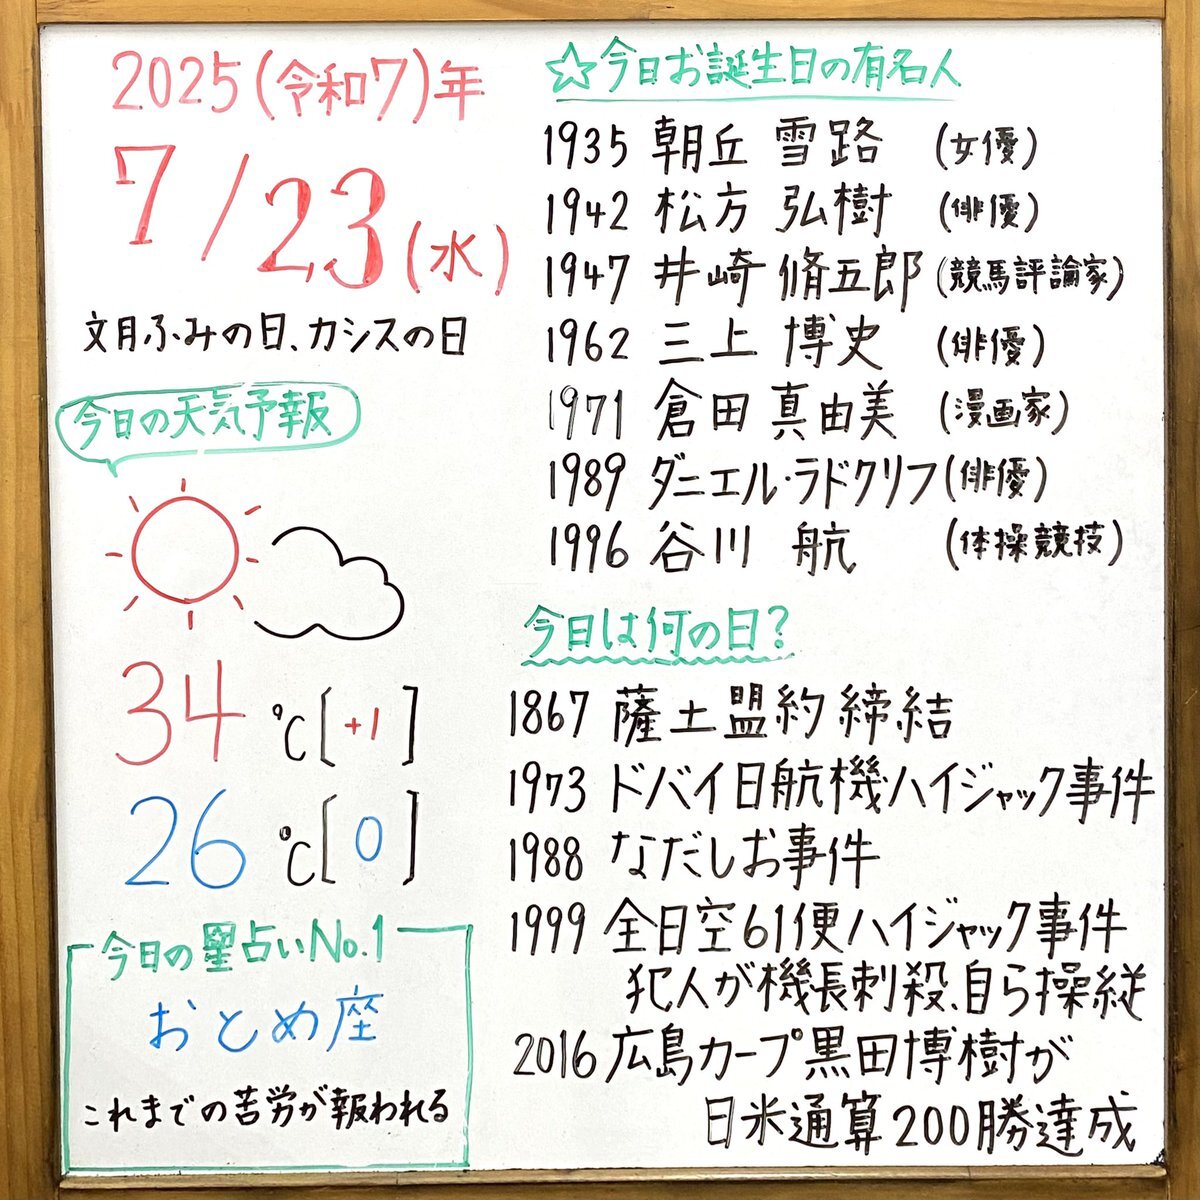 2025(令和7)年
7/23(水)
文月ふみの日、カシスの日
今日の天気予報
34℃[+1]
26℃[0]
今日の星占いNo.1
おとめ座
これまでの苦労が報われる
☆今日お誕生日の有名人
1935 朝丘 雪路 (女優)
1942 松方 弘樹 (俳優)
1947 井崎 脩五郎 (競馬評論家)
1962 三上 博史 (俳優)
1971 倉田 真由美 (漫画家)
1989 ダニエル・ラドクリフ (俳優)
1996 谷川 航 (体操競技)
今日は何の日?
1867 薩土盟約締結
1973 ドバイ日航機ハイジャック事件
1988 なだしお事件
1999 全日空61便ハイジャック事件
犯人が機長刺殺、自ら操縦
2016 広島カープ黒田博樹が
日米通算200勝達成